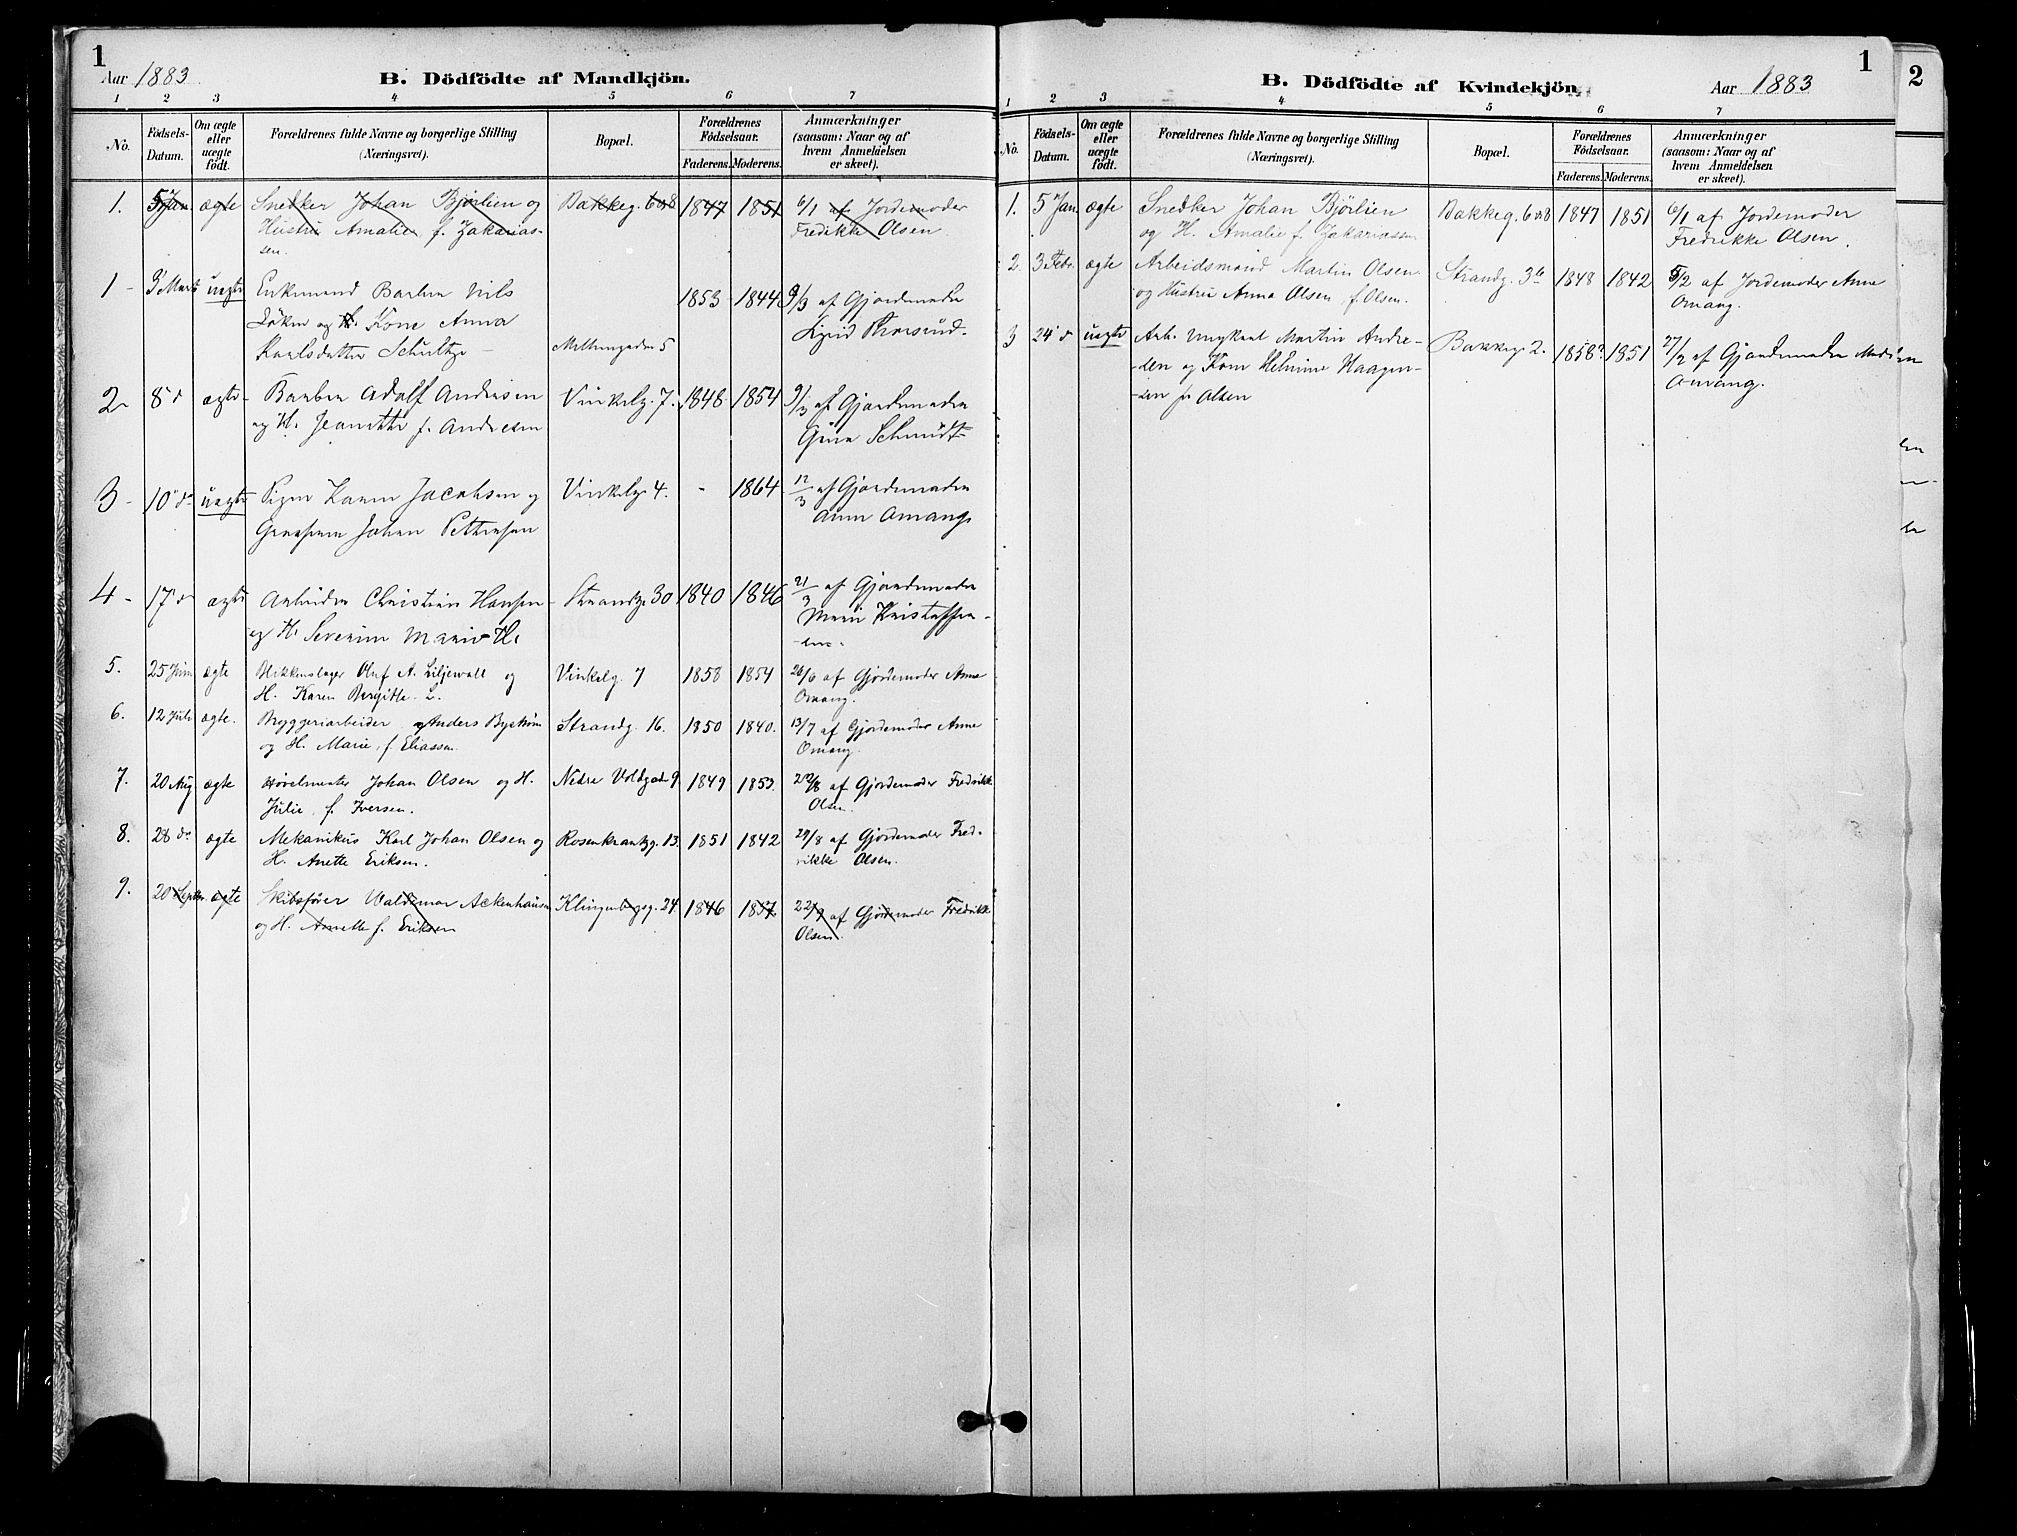 1
Aar 1883
B. Dödfödte af Mandkjön.
1 2 3 4 5 6 7
No.
Födsels-
Datum.
Om ægte
eller
uægte
födt.
Forældrenes fulde Navne og borgerlige Stilling
(Næringsvei).
Bopæl.
Forældrenes
Födselsaar.
Faderens. Moderens.
Anmærkninger
(saasom: Naar og af
hvem Anmeldelsen
er skeet).
1. 5 Jan. ægte Snedker Johan Bjørlien og Bakkeg. 6 o 8 1847 1851 6/1 af Jordemoder
Hustru Amalie f. Zakarias- Fredikke Olsen
sen.
1 - 3' Marts uægte Enkemand Barber Nils 1853 - 1844 9/3 af Gjordemoder
Løken og Kone Anna Thorsrud -
Karlsdatter Schultze - Mellemgaden 5
2 - 8' d ægte - Barber Adolf Andresen Vinkelg. 7. 1848 - 1854 9/3 af Gjordemoder
og H. Jeanette f. Andresen Gina Schmidt
3 - 10' do uægte Pigen Karen Jacobsen og Vinkelg 4. - 1864 12/3 af Gjordemoder
Johan Pettersen Anne Omang
4 - 17' d ægte Arbeider Christian Hansen - Strandg. 30 1840 1846 21/3 af Gjordemoder
og H. Severine Marie H. Marie Kristoffer-
sen.
5. 25 Juni ægte Blikkenslager Oluf A. Liljewall og Vinkelg. 7 1858 1854 26/6 af Gjordemoder Anne
H. Karen Birgitte L. Omang.
6. 12 Juli ægte. Bryggeriarbeider Anders Byström Strandg. 16. 1850 1840. 13/7 af Gjordemoder Anne
og H. Marie, f. Eliassen. Omang.
7. 20 Aug ægte Høvelmester Johan Olsen og H. Nedre Voldgade 9. 1849 1853. 22/8 af Gjordemoder Fredrikke
Julie, f. Iversen. Olsen.
8. 28 do ægte Mekanikus Karl Johan Olsen og Rosenkrantzg. 13. 1851 1842 29/8 af Gjordemoder Fred-
H. Anette Eriksen. rikke Olsen.
9. 20 Septbr. ægte Skibsfører Waldemar Ackenhausen Klingenbergsg. 24. 1846 1857. 22/9 af Gjordemoder Fredrikke
og H. Annette f. Eriksen Olsen.
1
B. Dödfödte af Kvindekjön.
Aar 1883
1 2 3 4 5 6 7
No.
Födsels-
Datum.
Om ægte
eller
uægte
födt.
Forældrenes fulde Navne og borgerlige Stilling
(Næringsvei).
Bopæl.
Forældrenes
Födselsaar.
Faderens. Moderens.
Anmærkninger
(saasom: Naar og af
hvem Anmeldelsen
er skeet).
1. 5 Jan. ægte Snedker Johan Bjørlien Bakkeg. 6 o 8 1847 1851 6/1 af Jordemoder
og H. Amalie f. Zakariassen Fredrikke Olsen.
2. 3 Febr. ægte Arbeidsmand Martin Olsen Strandg. 36 1848 1842 5/2 af Jordemoder Anne
og Hustru Anna Olsen, f. Olsen. Omang.
3 24' d uægte Arb. Ungkarl Martin Andre- Bakkeg. 2. 1858? 1851 27/2 af Gjordemoder
og Kone Helmine Haagen- Omang.
sen f. Olsen
2